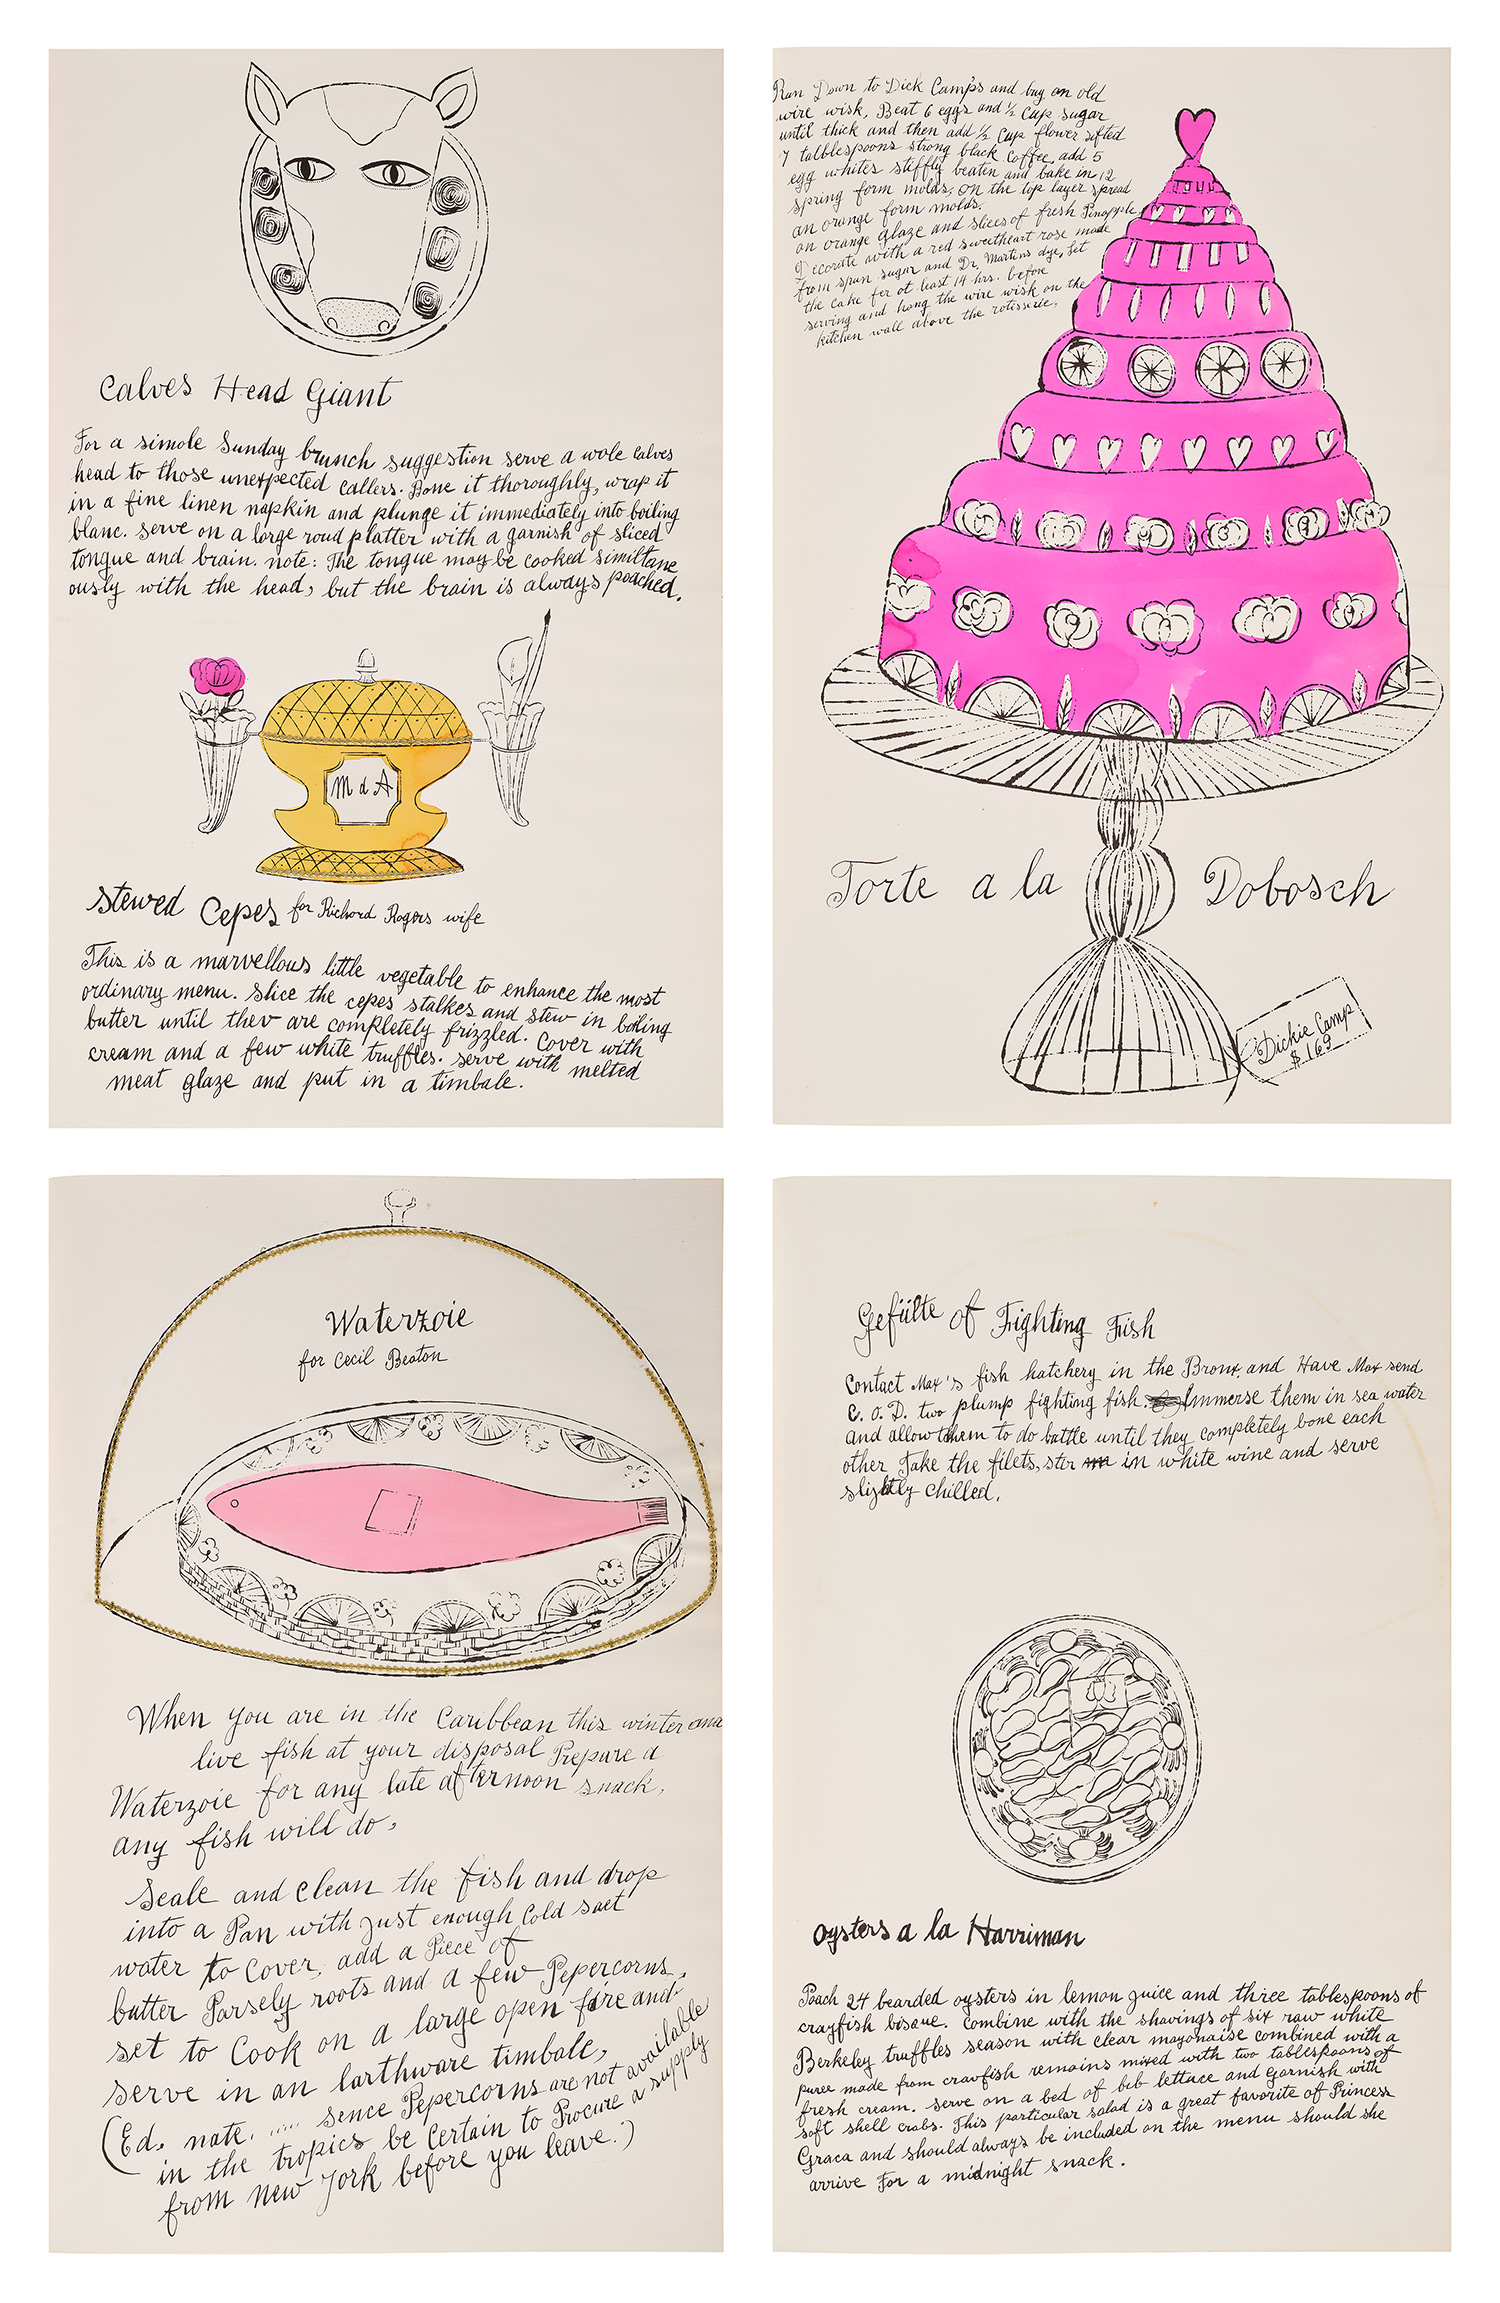 Calves Head Giant
For a simole Sunday brunch suggestion serve a wole calves
head to those unexpected callers. Bone it thoroughly, wrap it
in a fine linen napkin and plunge it immediately into boiling
blanc. serve on a large roud platter with a garnish of sliced
tongue and brain. note: The tongue may be cooked similtane
ously with the head, but the brain is always poached.
M d A
Stewed Cepes for Richard Rogers wife
This is a marvellous little vegetable to enhance the most
ordinary menu. Slice the cepes stalkes and stew in boiling
butter until thev are completely frizzled. Cover with
cream and a few white truffles. serve with melted
meat glaze and put in a timbale.
Run Down to Dick Camp's and buy an old
wire wisk, Beat 6 eggs and ½ Cup sugar
until thick and then add ½ Cup flower sifted
7 talblespoons strong black Coffee, add 5
egg whites stiffly beaten and bake in 12
spring form molds, on the top layer spread
an orange form molds.
an orange glaze and slices of fresh Pinapple
Decorate with a red sweetheart rose made
from spun sugar and Dr. Martins dye, Let
the Cake fer at least 14 hrs. before
serving and hang the wire wisk on the
kitchen wall above the rotisserie.
Torte a la Dobosch
Dichie Camp
$ 1.69
Waterzoie
for Cecil Beaton
When you are in the Caribbean this winter and
live fish at your disposal Prepare a
Waterzoie for any late afternoon snack,
any fish will do,
Scale and clean the fish and drop
into a Pan with just enough Cold salt
water to Cover, add a Piece of
butter Parsely roots and a few Pepercorns,
set to Cook on a large open fire and
serve in an earthware timbale,
(Ed. note. ..... Sence Pepercorns are not available
in the tropics be Certain to Procure a supply
from New York before you leave.)
Gefülte of Fighting Fish
Contact Max's fish hatchery in the Bronx, and Have Max send
C. O. D. two plump fighting fish. Immerse them in sea water
and allow them to do battle until they completely bone each
other Take the filets, ster in white wine and serve
slightly chilled.
Oysters a la Harriman
Poach 24 bearded oysters in lemon juice and three tablespoons of
crayfish bisque. Combine with the shavings of six raw white
Berkeley truffles season with clear mayonaise combined with a
puree made from crawfish remains mixed with two tablespoons of
fresh cream. Serve on a bed of bib lettuce and garnish with
soft shell crabs. This particular salad is a great favorite of Princess
Graca and should always be included on the menu should she
arrive for a midnight snack.